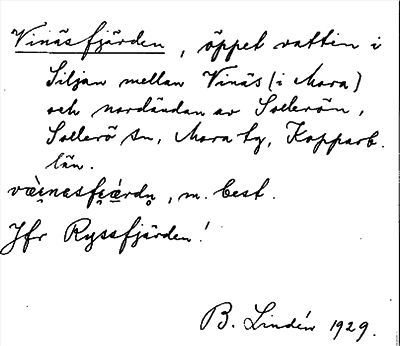 Vinäsfjärden, öppet vatten i
Siljan mellan Vinäs (i Mora)
och nordändan av Sollerön,
Sollerö sn, Mora tg, Kopparb.
län.
m. best.
Jfr Ryssfjärden!
B. Lindén 1929.